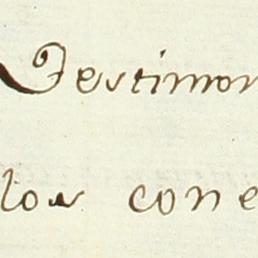 Testimon
los cone